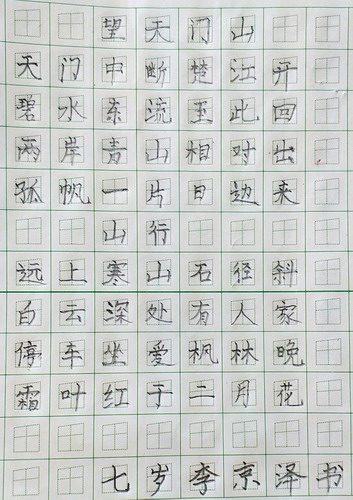 望天门山
天门中断楚江开
碧水东流至此回
两岸青山相对出
孤帆一片日边来
山行
远上寒山石径斜
白云深处有人家
停车坐爱枫林晚
霜叶红于二月花
七岁李京泽书